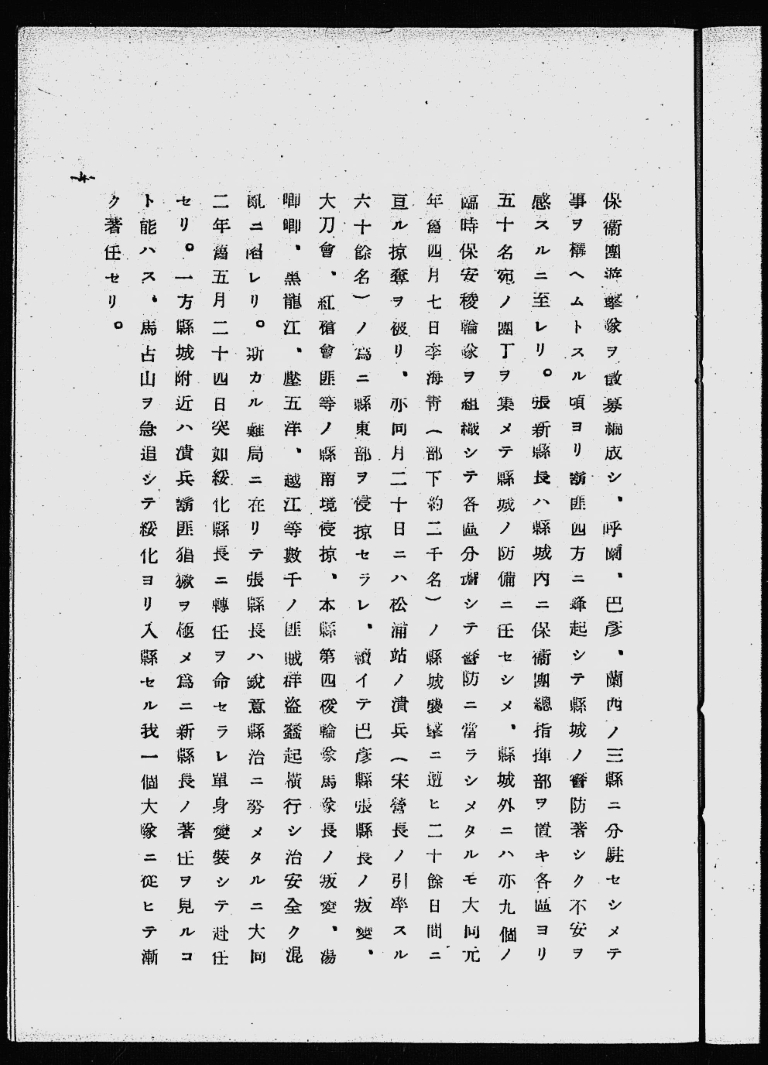 保衞團游擊隊ヲ徵募編成シ、呼蘭、巴彥、蘭西ノ三縣ニ分駐セシメテ
事ヲ構ヘムトスル頃ヨリ鬍匪四方ニ蜂起シテ縣城ノ警防著シク不安ヲ
感スルニ至レリ。張新縣長ハ縣城內ニ保衞團總指揮部ヲ置キ各區ヨリ
五十名宛ノ團丁ヲ集メテ縣城ノ防備ニ任セシメ、縣城外ニハ亦九個ノ
臨時保安稜輪隊ヲ組織シテ各區分擔シテ警防ニ當ラシメタルモ大同元
年舊四月七日李海靑(部下約二千名)ノ縣城襲擊ニ遭ヒ二十餘日間ニ
亘ル掠奪ヲ被リ、亦同月二十日ニハ松浦站ノ潰兵(宋營長ノ引率スル
六十餘名)ノ爲ニ縣東部ヲ侵掠セラレ、續イテ巴彥縣張縣長ノ叛變、
大刀會、紅槍會匪等ノ縣南境侵掠、本縣第四稜輪隊馬隊長ノ叛變、湯
唧唧、黑龍江、壓五洋、越江等數千ノ匪賊群盜蜂起橫行シ治安全ク混
亂ニ陷レリ。斯カル難局ニ在リテ張縣長ハ銳意縣治ニ努メタルニ大同
二年舊五月二十四日突如綏化縣長ニ轉任ヲ命セラレ單身變裝シテ赴任
セリ。一方縣城附近ハ潰兵鬍匪猖獗ヲ極メ爲ニ新縣長ノ著任ヲ見ルコ
ト能ハス、馬占山ヲ急追シテ綏化ヨリ入縣セル我一個大隊ニ從ヒテ漸
ク著任セリ。